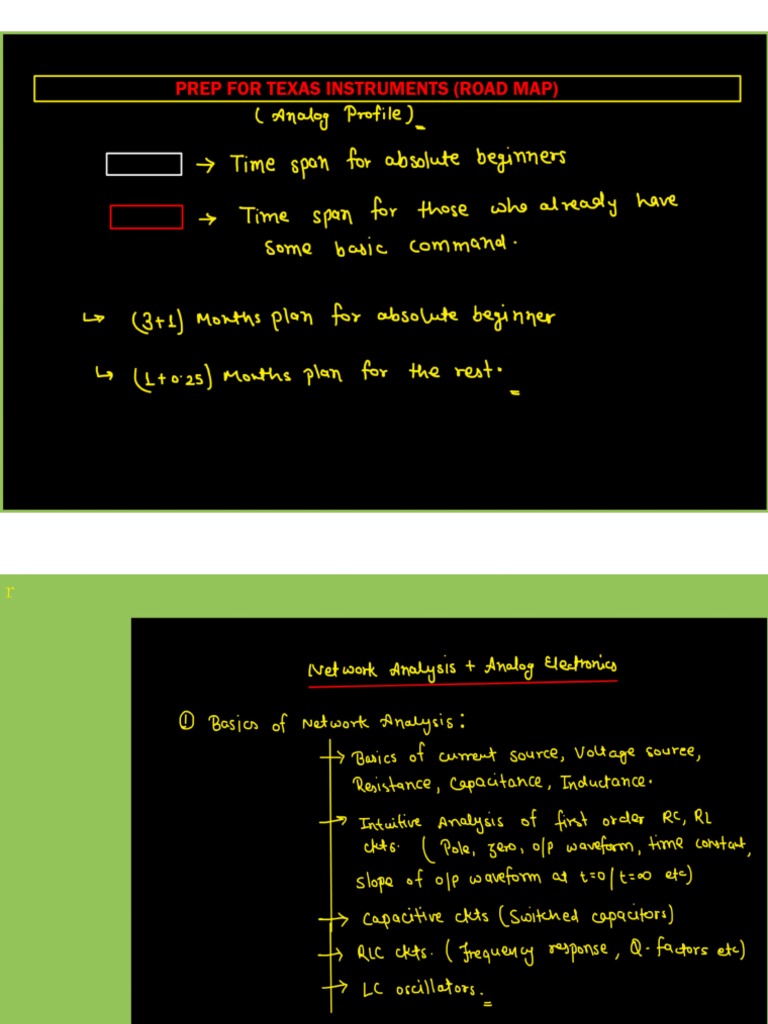 PREP FOR TEXAS INSTRUMENTS (ROAD MAP)
(Analog Profile)
→ Time span for absolute beginners
→ Time span for those who already have
some basic command.
↳ (3+1) Months plan for absolute beginner
↳ (1+0.25) Months plan for the rest.
r
Network Analysis + Analog Electronics
① Basics of Network Analysis:
→ Basics of current source, Voltage source,
Resistance, Capacitance, Inductance.
→ Intuitive Analysis of first order RC, RL
ckts. (Pole, zero, o/p waveform, time constant,
slope of o/p waveform at t=0/t=∞ etc)
→ Capacitive ckts (Switched capacitors)
→ RLC ckts. (Frequency response, Q-factors etc)
→ LC oscillators.